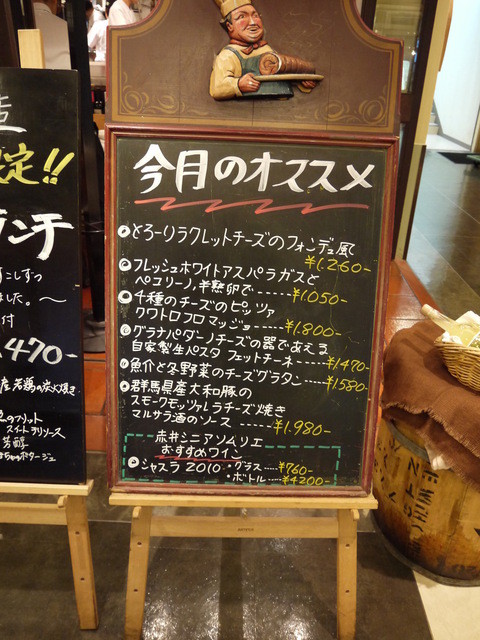 造
定!!
ランチ
すこしずつ
ました。〜
付
1,470-
産若鶏の炭火焼き
のフリット
スイートチリソース
芳醇
ポタージュ
今月のオススメ
とろーりラクレットチーズのフォンデュ風
¥1.260-
フレッシュホワイトアスパラガスと
ペコリーノ,半熟卵で------¥1.050-
4種のチーズのピッツァ
クワトロフロマッジョ-----¥1.800-
グラナパダーノチーズの器であえる
自家製生パスタ フェットチーネ----¥1.470-
魚介と冬野菜のチーズグラタン----¥1580-
群馬県産大和豚の
スモークモッツァレラチーズ焼き
マルサラ酒のソース-----¥1.980-
赤井シニアソムリエ
おすすめワイン
シャスラ 2010・グラス----¥760-
・ボトル----¥4200-